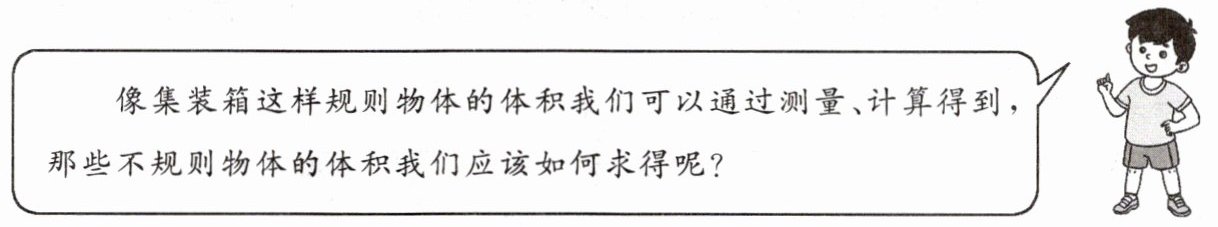 像集装箱这样规则物体的体积我们可以通过测量、计算得到，
那些不规则物体的体积我们应该如何求得呢？